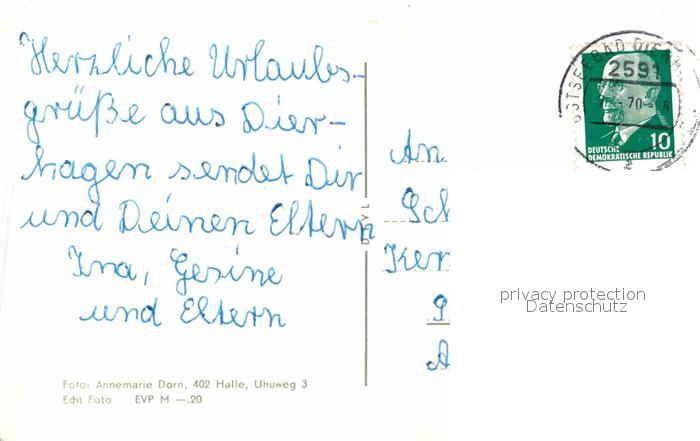 Herzliche Urlaubs-
grüße aus Dier-
hagen sendet Dir
und Deinen Eltern
Ina, Gesine
und Eltern
Foto: Annemarie Dorn, 402 Halle, Uhuweg 3
Echt Foto EVP M —.20
An
Sch
Ker
A
OSTSEEBAD DIER
2591
70
10
DEUTSCHE
DEMOKRATISCHE REPUBLIK
privacy protection
Datenschutz